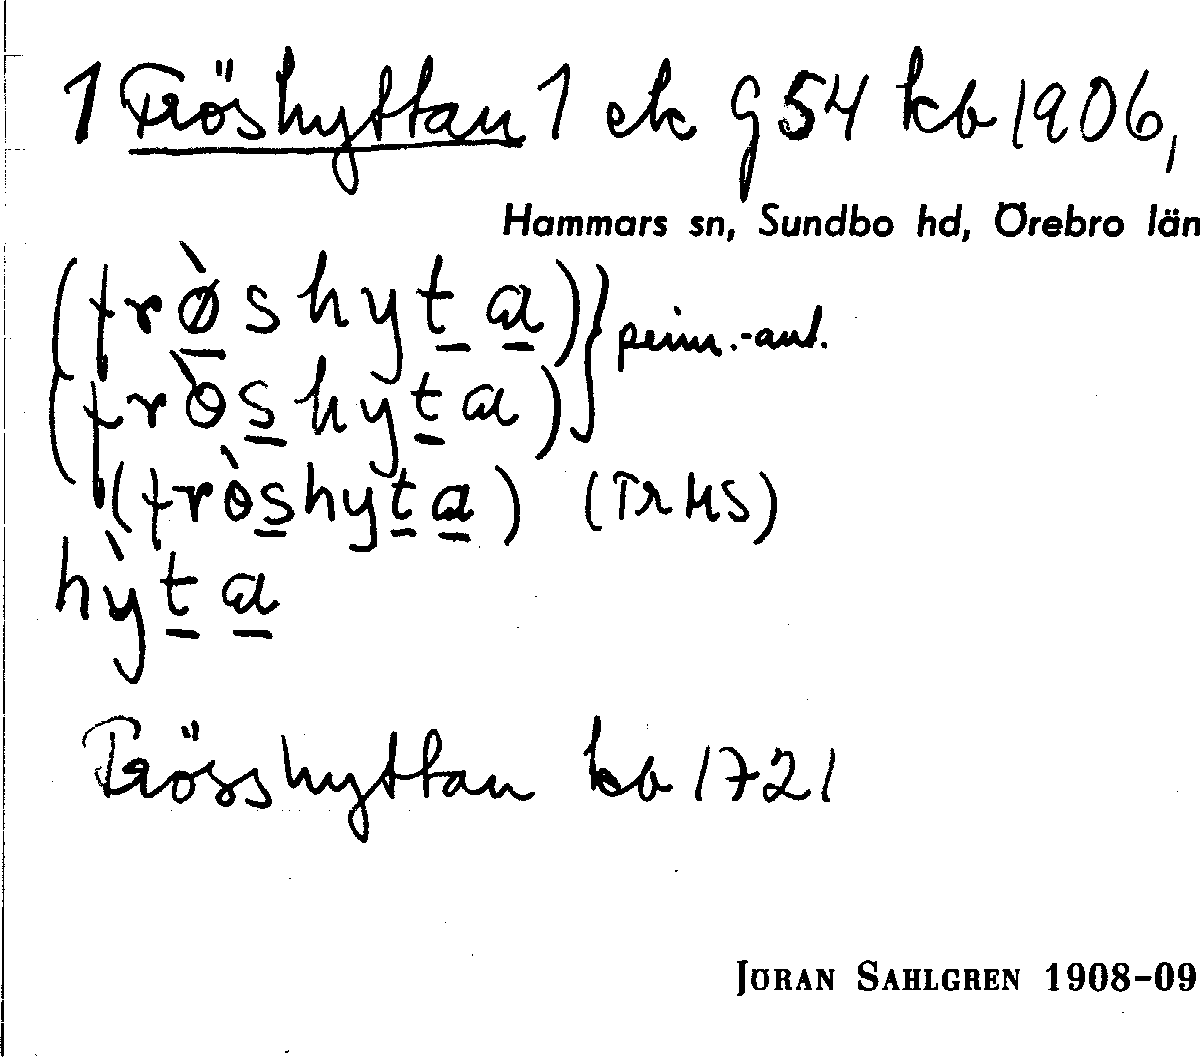 1 Tröshyttan 1 ek g 54 kb 1906,
Hammars sn, Sundbo hd, Örebro län
(trø̀shyta)
(trɵ̀shyta) } prim.-ant.
(trɵ̀shyta) (TrHS)
hỳta
Trösshyttan kb 1721
JÖRAN SAHLGREN 1908-09